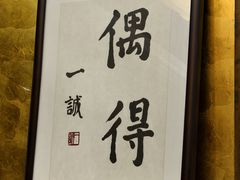 偶得
一誠